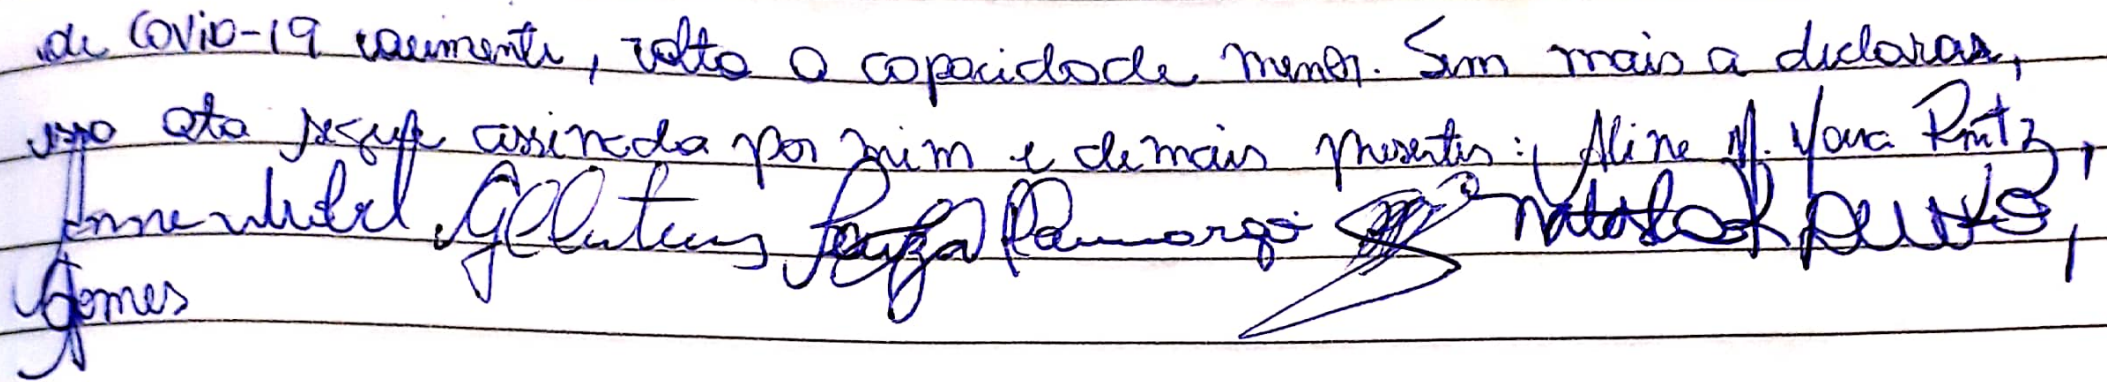 de COVID-19 aumente, volta a capacidade menor. Sem mais a declarar,
essa ata segue assinada por mim e demais presentes: Aline M. Prutz,
Camargo
Gomes